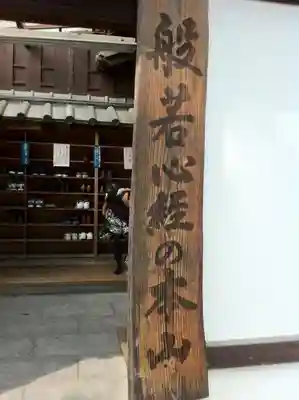 般若心経の本山